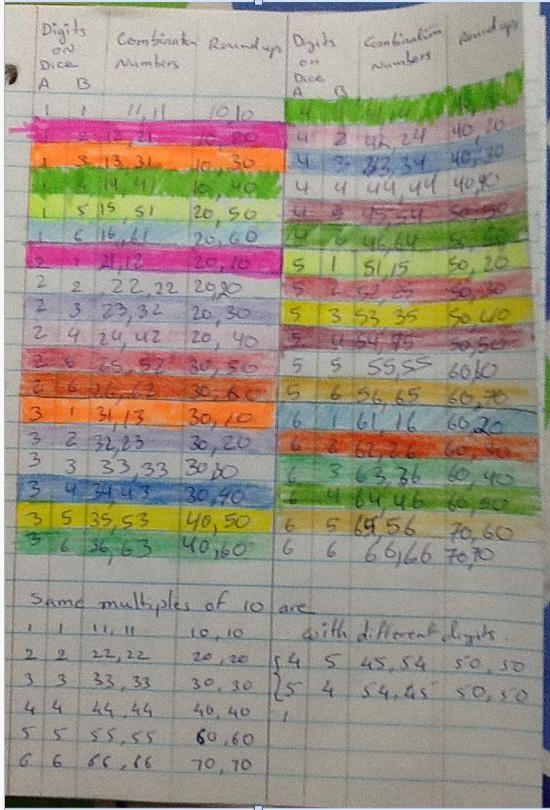 Digits on Dice Combination Numbers Round up Digits on Dice Combination Numbers Round up
A B A B
1 1 11,11 10,10 4 1
1 2 12,21 10,20 4 2 42,24 40,20
1 3 13,31 10,30 4 3 43,34 40,30
1 4 14,41 10,40 4 4 44,44 40,40
1 5 15,51 20,50 4 5 45,54 50,50
1 6 16,61 20,60 4 6 46,64 50,60
2 1 21,12 20,10 5 1 51,15 50,20
2 2 22,22 20,20 5 2 52,25 50,30
2 3 23,32 20,30 5 3 53,35 50,40
2 4 24,42 20,40 5 4 54,45 50,50
2 5 25,52 30,50 5 5 55,55 60,60
2 6 26,62 30,60 5 6 56,65 60,70
3 1 31,13 30,10 6 1 61,16 60,20
3 2 32,23 30,20 6 2 62,26 60,30
3 3 33,33 30,30 6 3 63,36 60,40
3 4 34,43 30,40 6 4 64,46 60,50
3 5 35,53 40,50 6 5 65,56 70,60
3 6 36,63 40,60 6 6 66,66 70,70
Same multiples of 10 are
1 1 11,11 10,10 with different digits.
2 2 22,22 20,20 4 5 45,54 50,50
3 3 33,33 30,30 5 4 54,45 50,50
4 4 44,44 40,40
5 5 55,55 60,60
6 6 66,66 70,70